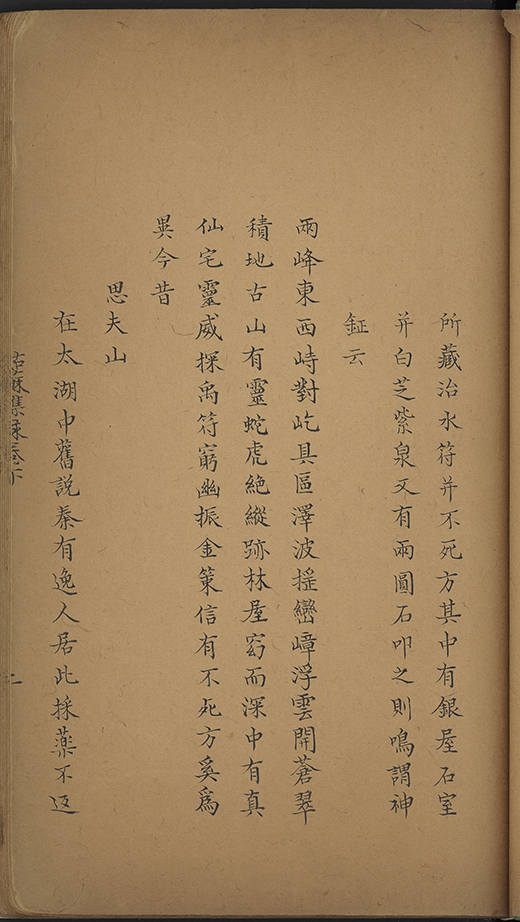 所藏治水符并不死方其中有銀屋石室
并白芝紫泉又有兩圓石叩之則鳴謂神
鉦云
兩峰東西峙對屹具區澤波揺巒嶂浮雲開蒼翠
積地古山有靈蛇虎絶縱跡林屋窈而深中有真
仙宅靈威探禹符窮幽振金策信有不死方奚為
異今昔
思夫山
在太湖中舊說秦有逸人居此採藥不返
集 卷下
二